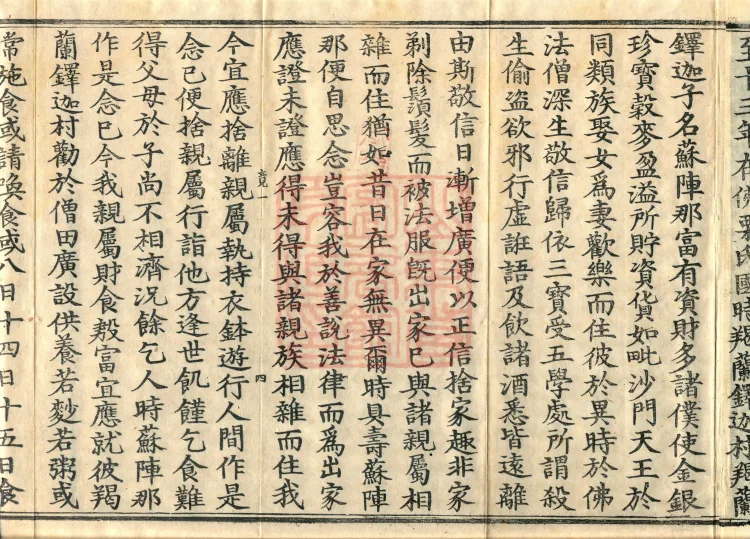 至十三年在佛栗氏國時羯蘭鐸迦村羯蘭
鐸迦子名蘇陣那富有資財多諸僕使金銀
珍寶穀麥盈溢所貯資貨如毗沙門天王於
同類族娶女爲妻歡樂而住彼於異時於佛
法僧深生敬信歸依三寶受五學處所謂殺
生偷盗欲邪行虚誑語及飲諸酒悉皆遠離
由斯敬信日漸增廣便以正信捨家趣非家
剃除鬚髮而被法服旣出家已與諸親屬相
雜而住猶如昔日在家無異爾時具壽蘇陣
那便自思念豈容我於善說法律而爲出家
應證未證應得未得與諸親族相雜而住我
竟一 四
今宜應捨離親屬執持衣鉢遊行人間作是
念已便捨親屬行詣他方逢世飢饉乞食難
得父母於子尚不相濟況餘乞人時蘇陣那
作是念已今我親屬財食殷富宜應就彼羯
蘭鐸迦村勸於僧田廣設供養若麨若粥或
常施食或請喚食或八日十四日十五日食